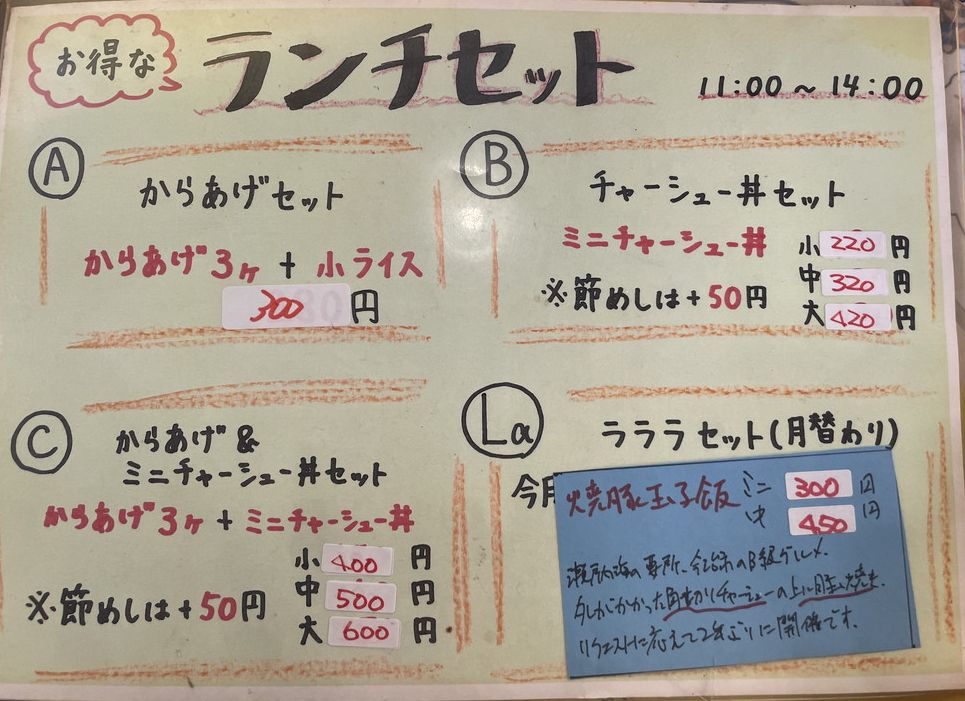 お得な
ランチセット
11:00～14:00
A
からあげセット
からあげ3ヶ+小ライス
300円
B
チャーシュー丼セット
ミニチャーシュー丼
小220円
中320円
大420円
※節めしは+50円
C
からあげ&
ミニチャーシュー丼セット
からあげ3ヶ+ミニチャーシュー丼
小400円
中500円
大600円
※節めしは+50円
La
ラララセット(月替わり)
今月
焼豚玉子飯
ミニ300円
中450円
瀬戸内海の要所、今治のB級グルメ。
タレがかかった角切りチャーシューの上に目玉焼き。
リクエストに応えて2年ぶりに開催です。